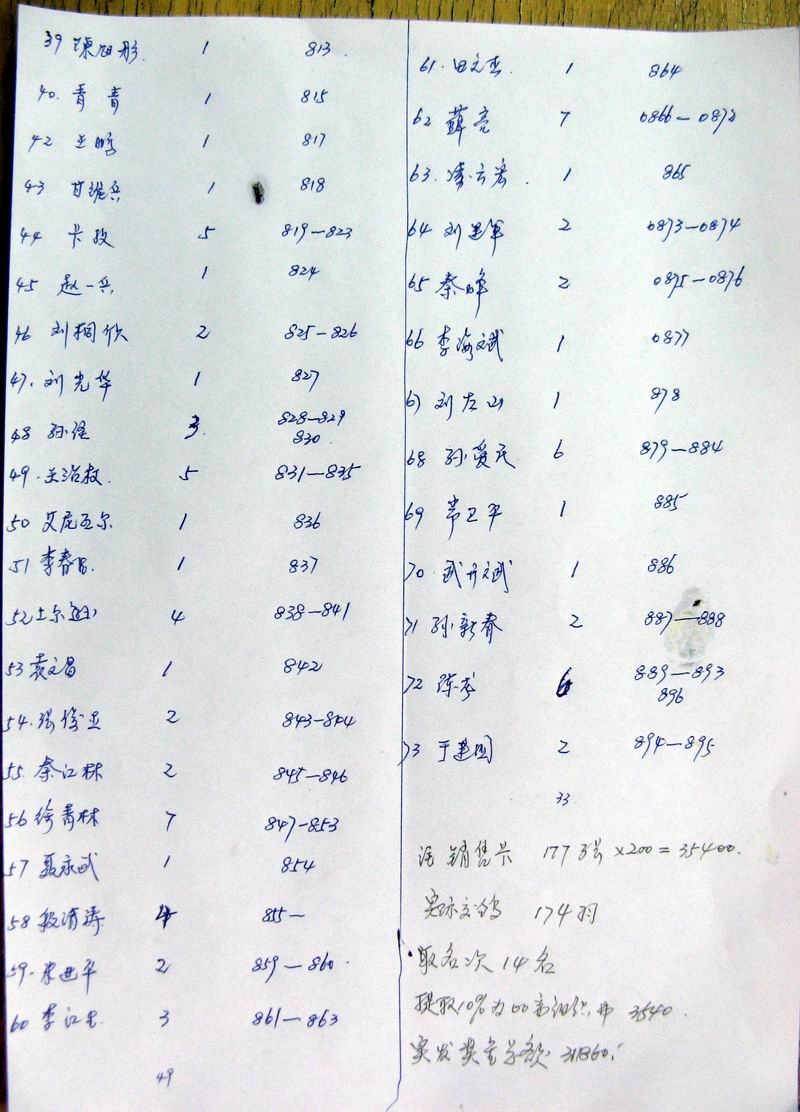 39 陳旭彤. 1 813.
40. 青青 1 815
42 王晖 1 817
43 甘继兵 1 818
44 卡孜 5 819—823
45 赵一兵 1 824
46 刘桐欣 2 825—826
47. 刘光华 1 827
48 孙强 3. 828—829
830.
49. 王治敖. 5 831—835
50 艾尼瓦尔 1 836
51 李春昌. 1 837
52 4 838—841
53 袁文昌 1 842
54. 张俊 2 843—844
55. 秦江林 2 845—846
56 徐青林 7 847—853
57 聂永武 1 854
58 段清涛 4 855—
59. 朱进平 2 859—860.
60 李江 3 861—863
49
61. 田文杰 1 864
62 薛亮 7 0866—0872
63. 1 865
64 刘建军 2 0873—0874
65 秦峰 2 0875—0876
66 李海斌 1 0877
67 刘左山 1 878
68 孙爱民 6 879—884
69 常卫平 1 885
70 武开斌 1 886
71 孙新春 2 887—888
72 陈 6 889—893
896
73 于建国 2 894—895
33
注 销售卡 177张×200=35400.
实际交鸽 174羽
取名次 14名
提取10%为 组织 3540.
实发奖金总额 31860.